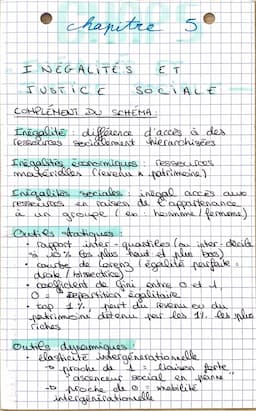 chapitre 5
INÉGALITÉS ET
JUSTICE SOCIALE
COMPLÉMENT DU SCHÉMA :
Inégalité : différence d'accès à des
ressources socialement hiérarchisées
Inégalités économiques : ressources
matérielles (revenu & patrimoine)
Inégalités sociales : inégal accès aux
ressources en raison de l'appartenance
à un groupe (ex : homme / femme)
Outils statiques :
• rapport inter-quantiles (ou inter-décile
si 10% les plus haut et plus bas)
• courbe de Lorenz (égalité parfaite =
droite / bissectrice)
• coefficient de Gini entre 0 et 1,
0 = répartition égalitaire
• top 1% : part du revenu ou du
patrimoine détenu par les 1% les plus
riches
Outils dynamiques :
• élasticité intergénérationnelle
→ proche de 1 = liaison forte
"ascenseur social en panne"
→ proche de 0 = mobilité
intergénérationnelle